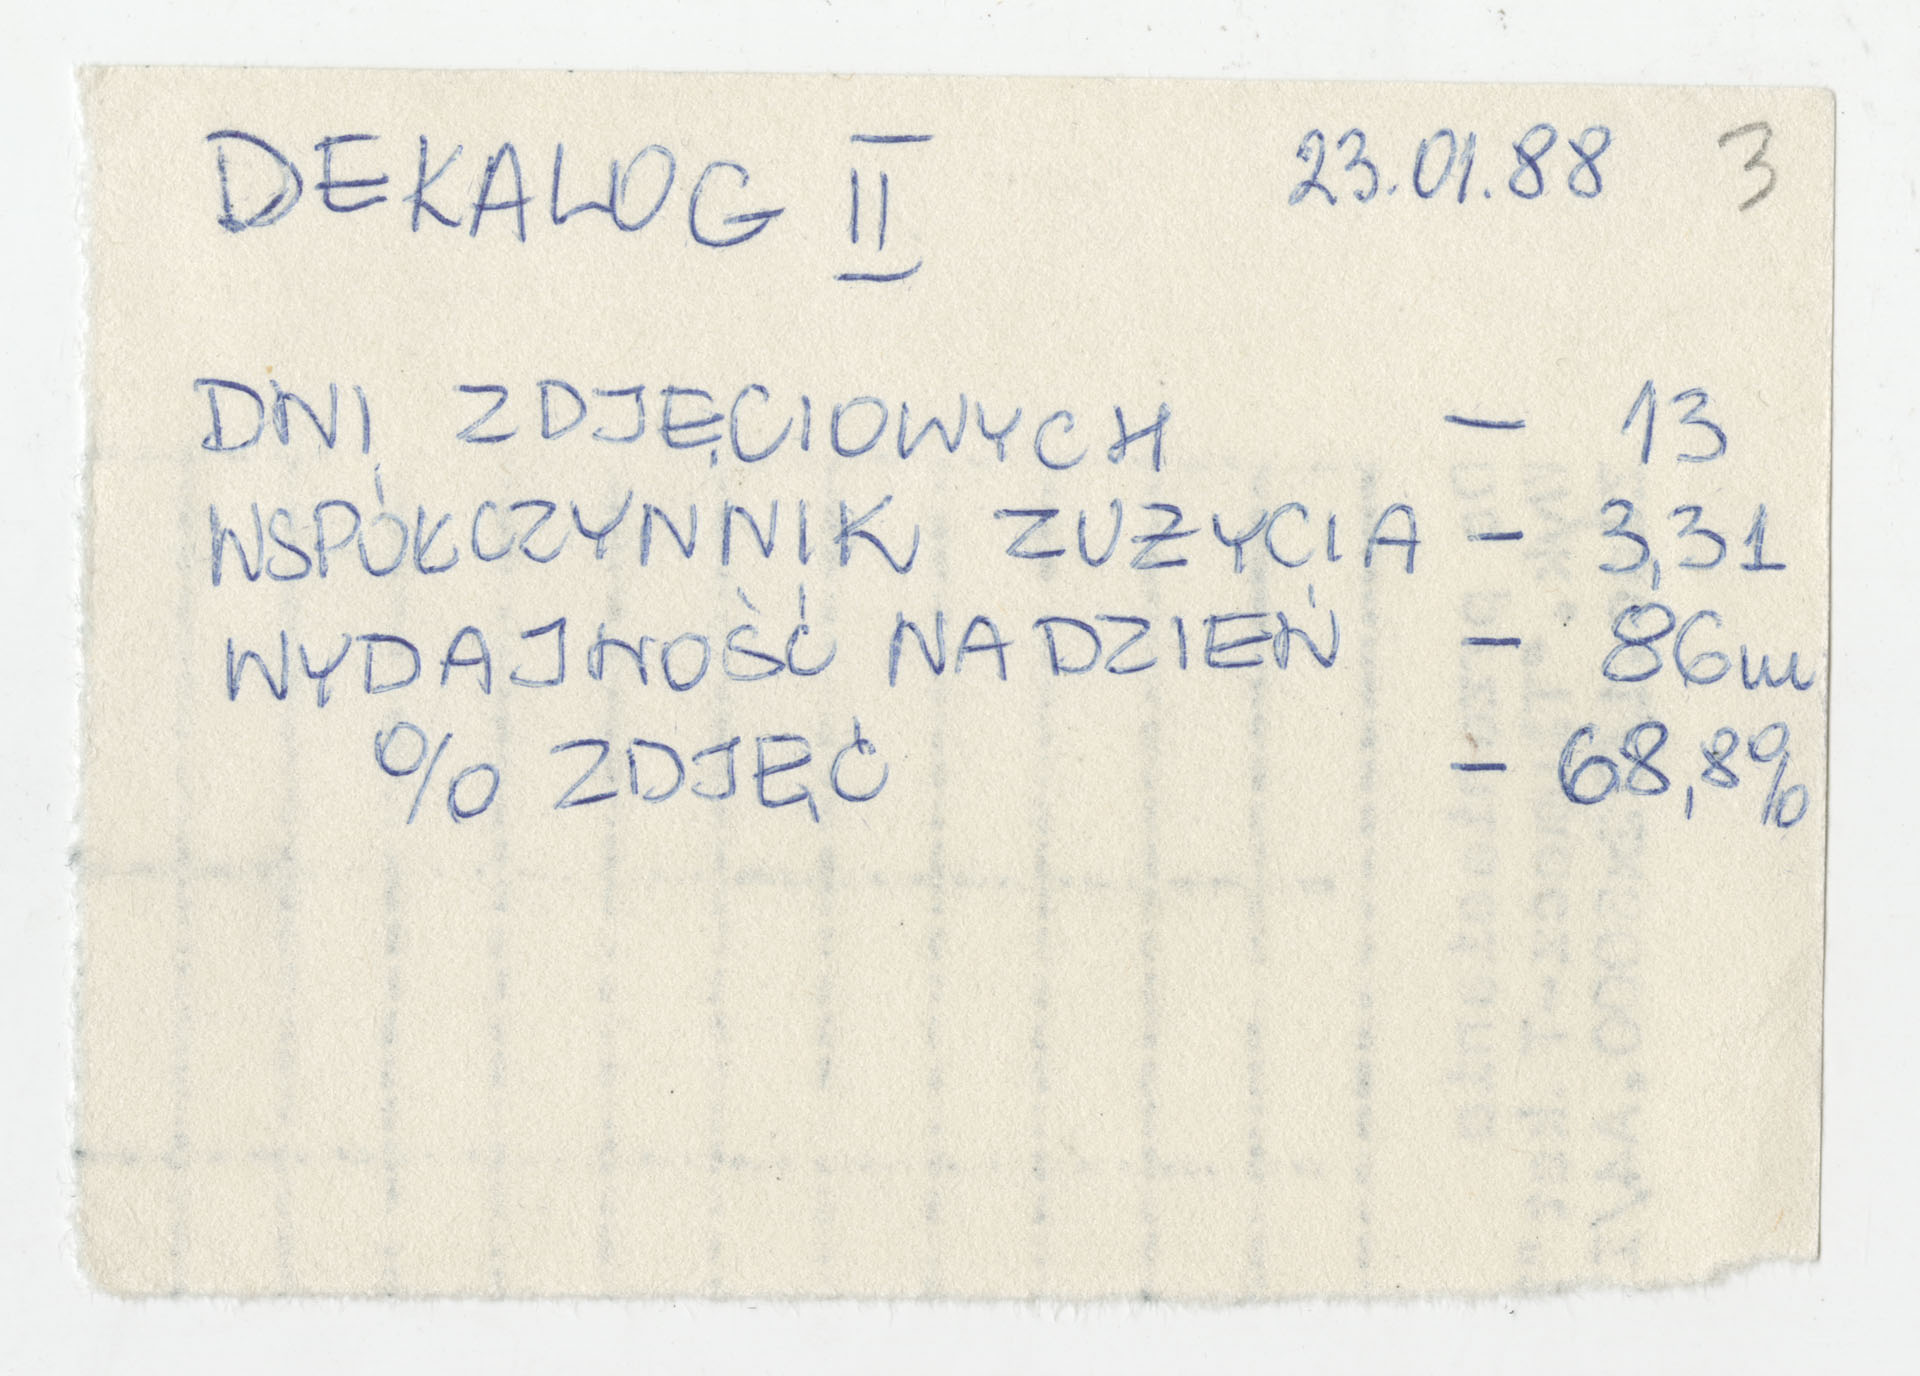 DEKALOG II 23.01.88 3
DNI ZDJĘCIOWYCH – 13
WSPÓŁCZYNNIK ZUŻYCIA – 3,31
WYDAJNOŚĆ NA DZIEŃ – 86m
% ZDJĘĆ – 68,8%